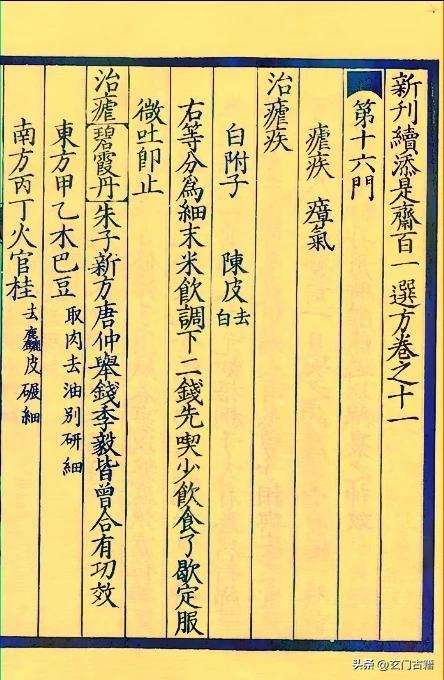 新刊續添是齋百一選方卷之十一
第十六門
瘧疾 瘴氣
治瘧疾
白附子 陳皮去白
右等分爲細末米飲調下二錢先喫少飲食了歇定服
微吐卽止
治瘧碧霞丹朱子新方唐仲舉錢季毅皆曾合有功效
東方甲乙木巴豆取肉去油別研細
南方丙丁火官桂去麤皮碾細
头条 @玄门古籍